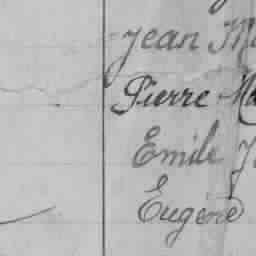 Jean M
Pierre Ma
Emile J
Eugène